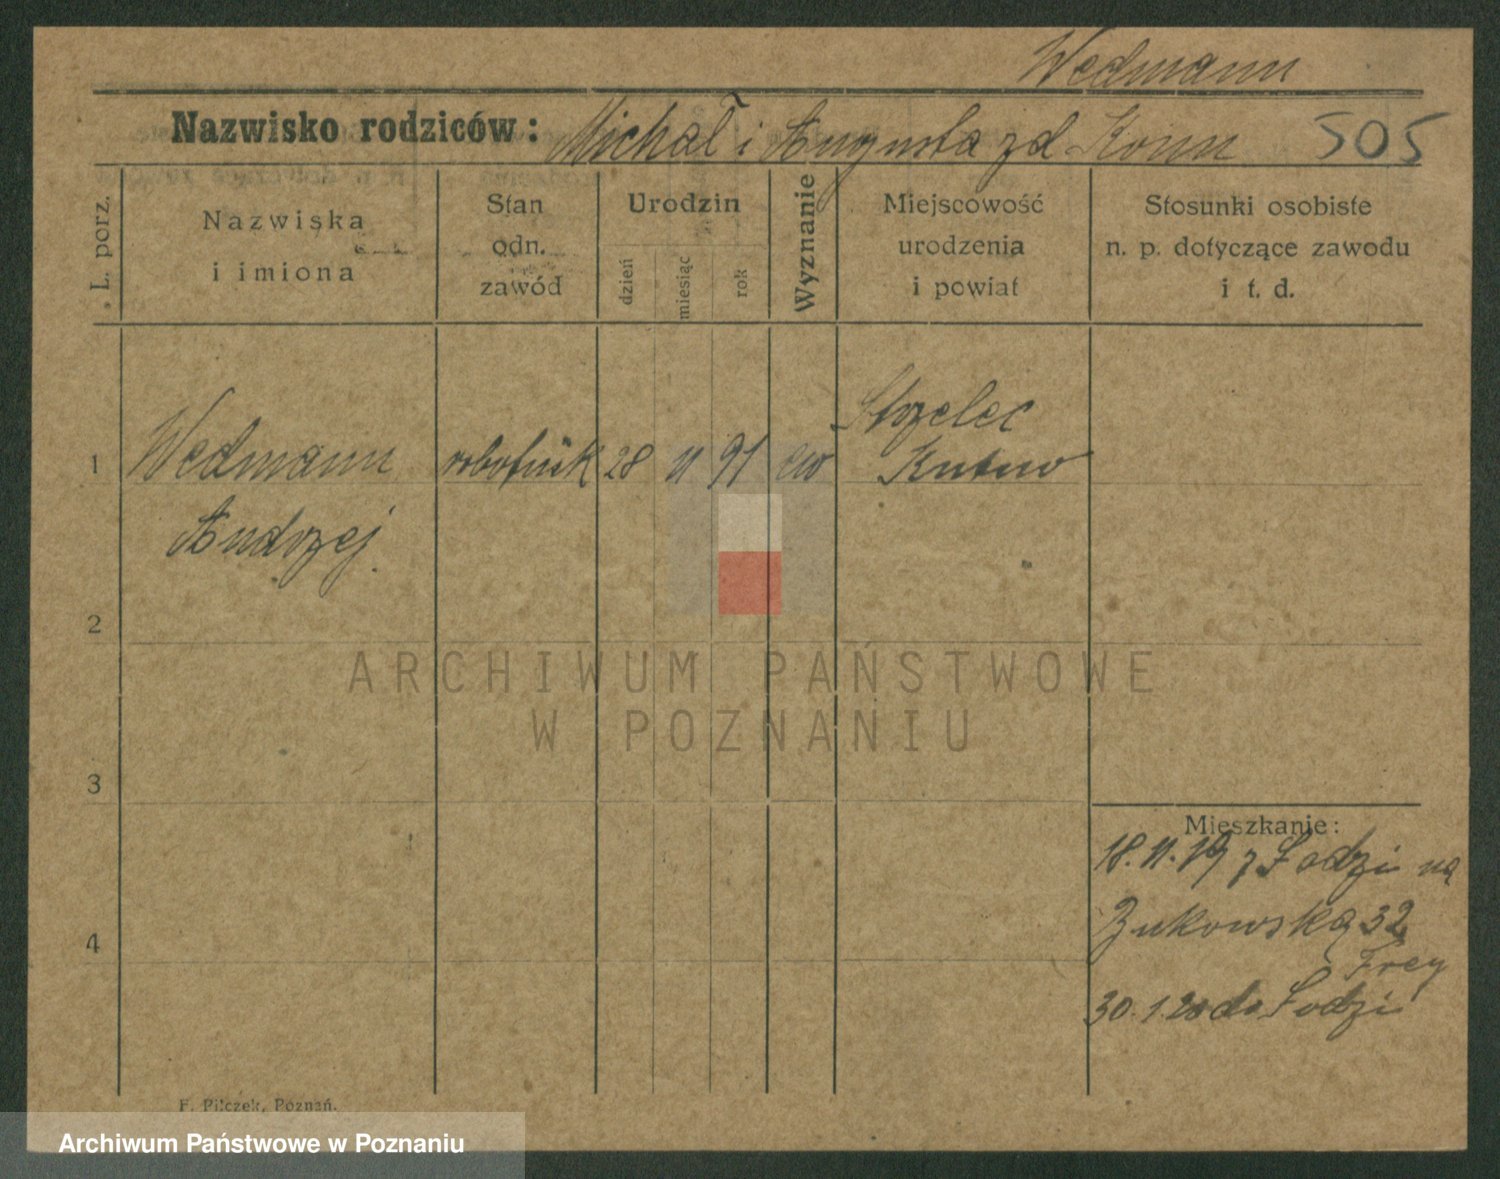 Wedmann
Nazwisko rodziców: Michał i Augusta zd Konn 505
L. porz.
Nazwiska
i imiona
Stan
odn.
zawód
Urodzin
dzień
miesiąc
rok
Wyznanie
Miejscowość
urodzenia
i powiat
Stosunki osobiste
n. p. dotyczące zawodu
i t. d.
1 Wedmann robotnik 28 11 91 ew Strzelec
Kutno
Andrzej
2
ARCHIWUM PAŃSTWOWE
W POZNANIU
3
Mieszkanie:
18.11.19 z Łodzi na
Bukowską 32
Frey
4
30.1.20 do Łodzi
F. Pilczek, Poznań.
Archiwum Państwowe w Poznaniu